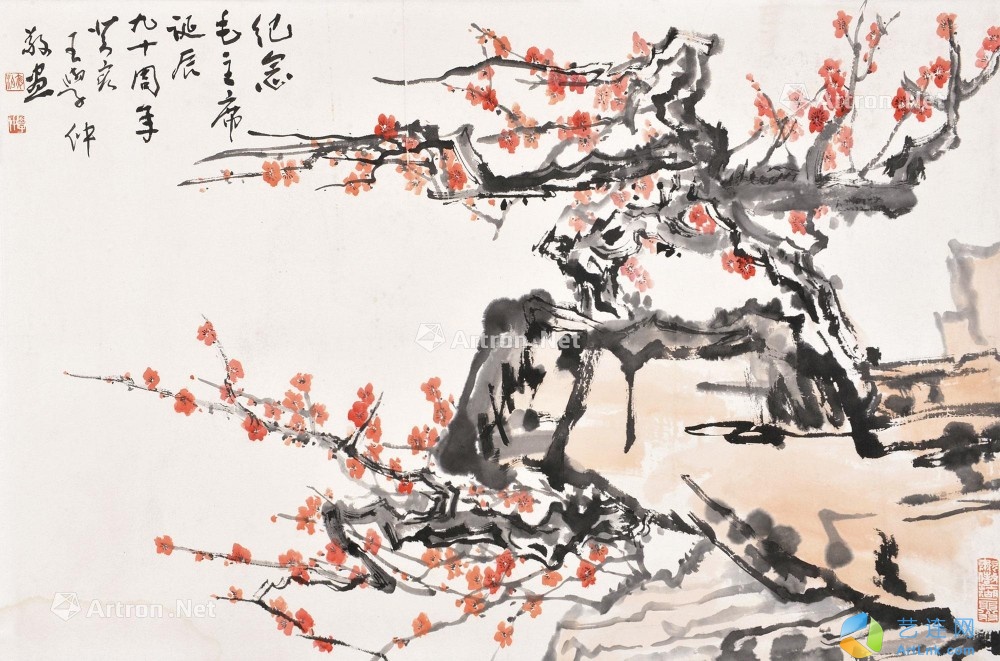 纪念
毛主席
诞辰
九十周年
癸亥
王学仲
敬画
Artron.Net
Artron.Net
Artron.Net
Artron.Net
艺连网
ArtLnk.com